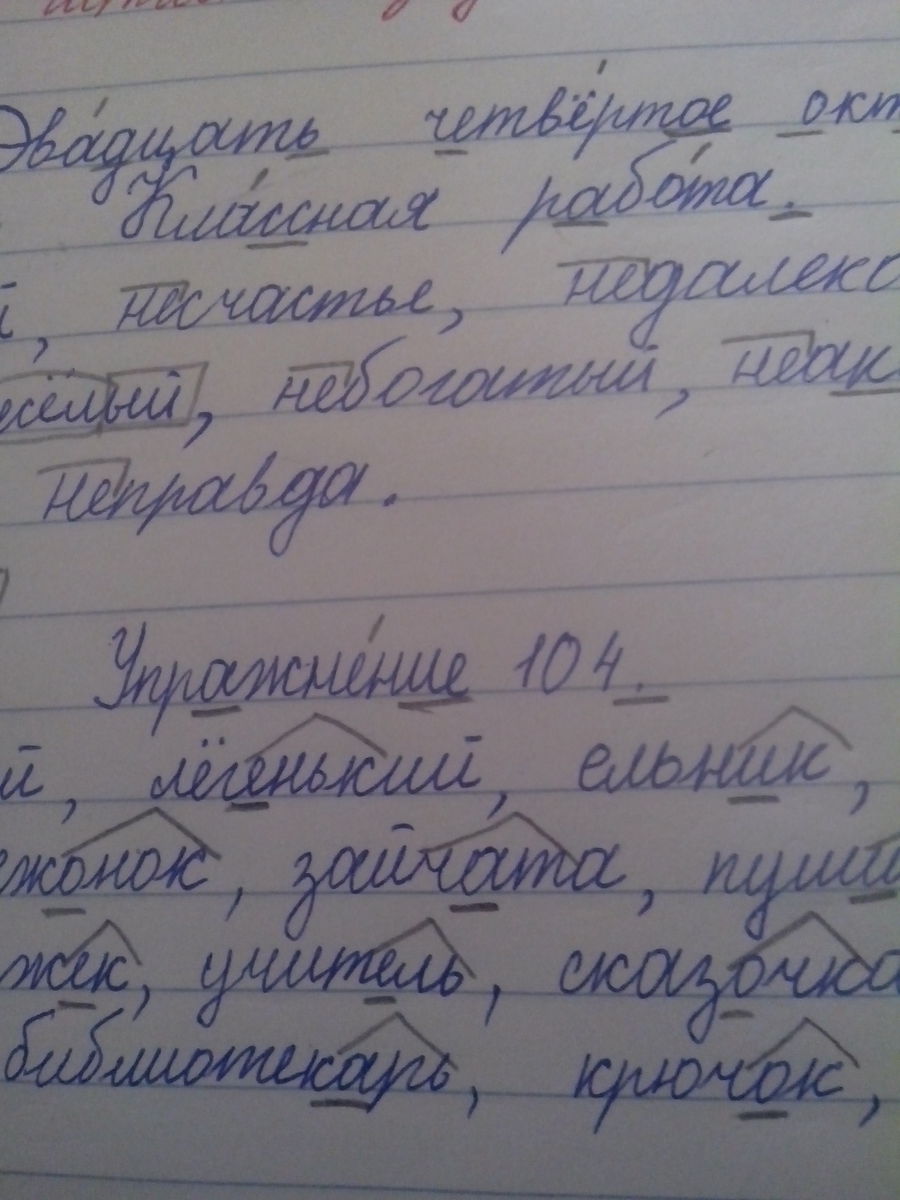 Двадцать четвёртое окт
Классная работа.
й, несчастье, недалеко
есёлый, небогатый, неак
неправда.
Упражнение 104.
й, лёгенький, ельник,
ежонок, зайчата, пуши
жек, учитель, сказочка
библиотекарь, крючок,